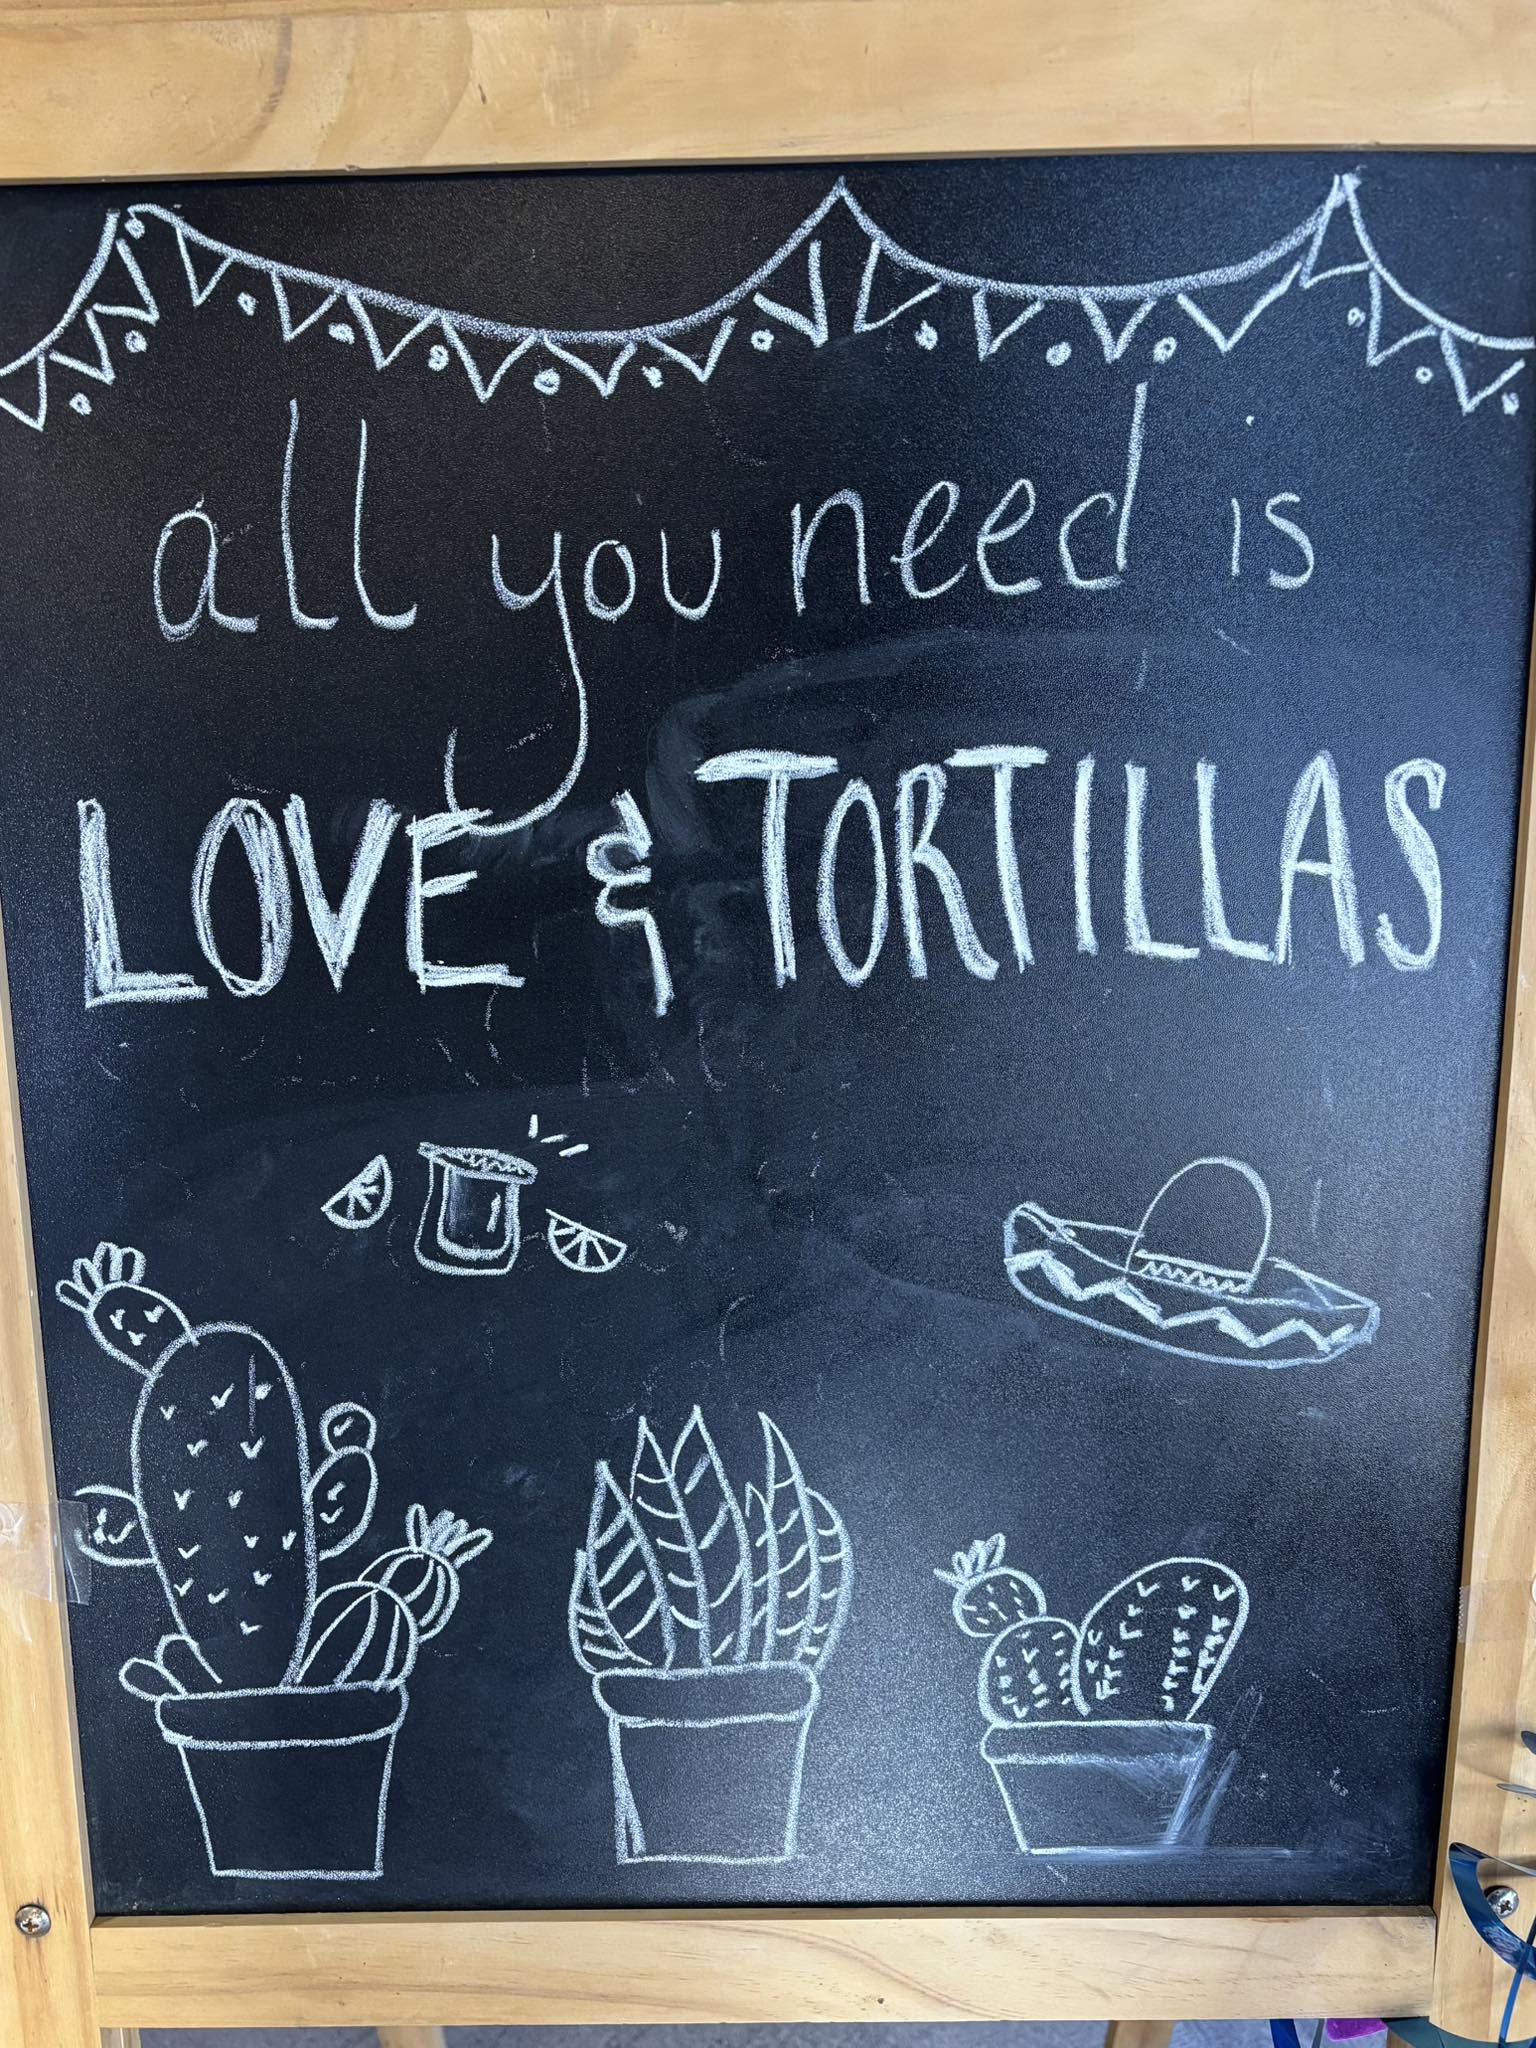 all you need is
LOVE & TORTILLAS